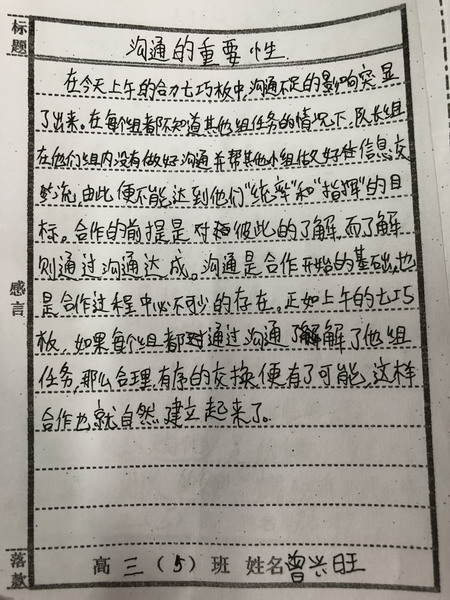 标题
沟通的重要性
在今天上午的合力七巧板中,沟通不足的影响突显
了出来。在每个组都不知道其他组任务的情况下,队长组
在他们组内没有做好沟通并帮其他小组做好信息交
流,由此便不能达到他们“统率”和“指挥”的目
标。合作的前提是对彼此的了解,而了解
则通过沟通达成。沟通是合作开始的基础,也
是合作过程中必不可少的存在。正如上午的七巧
板,如果每个组都通过沟通了解了他组
任务,那么合理,有序的交换便有了可能,这样
合作也就自然建立起来了。
感言
落款
高三(5)班 姓名曾兴旺